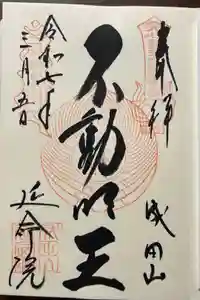 奉拝
成田山
不動明王
令和七年
三月五日
延命院